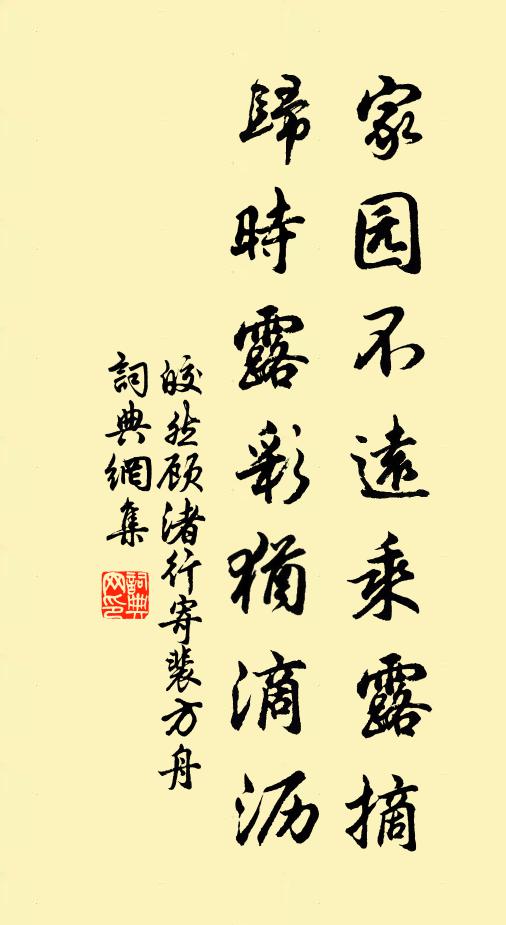 家园不遠乘露摘
歸時露彩猶滴沥
皎然顾渚行寄裴方舟
詞典網集
詞典网印